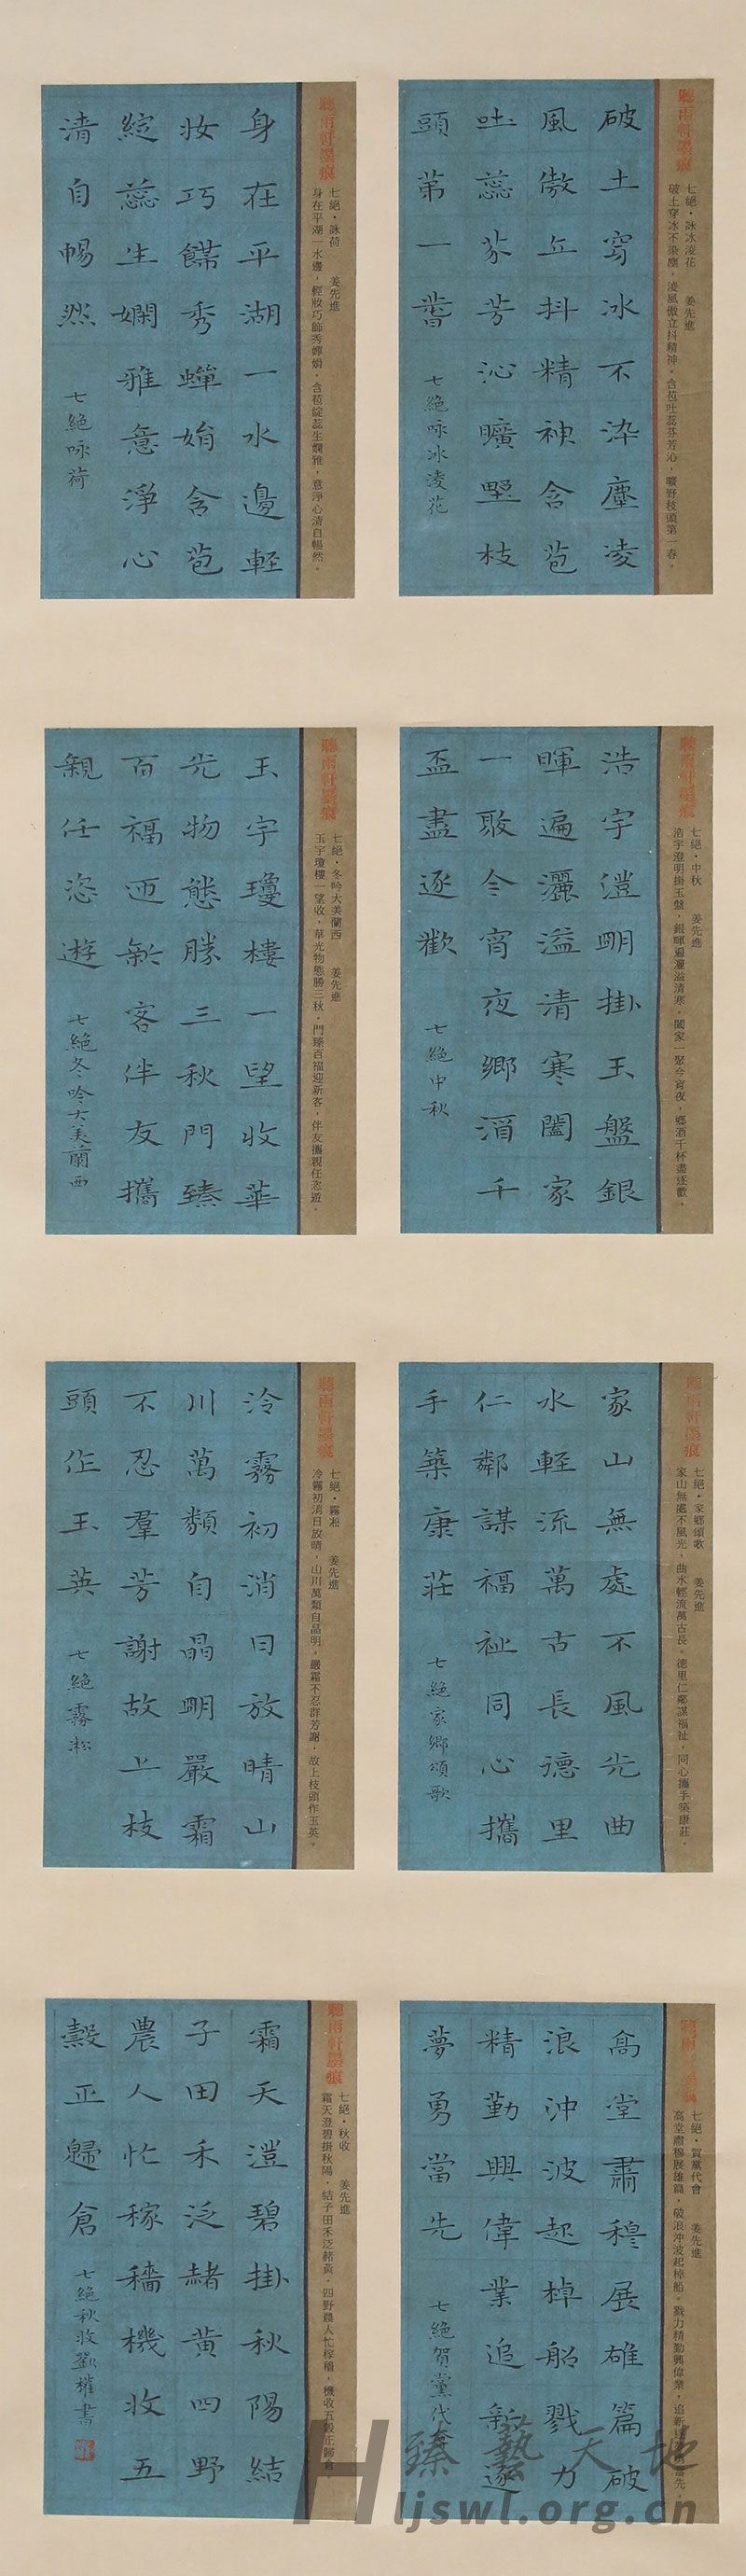 聽雨軒墨痕
七絕·詠冰淩花　姜先進
破土穿冰不染塵，淩風傲立抖精神。含苞吐蕊芬芳沁，曠野枝頭第一春。
破土穿冰不染塵凌
風傲立抖精神含苞
吐蕊芬芳沁曠野枝
頭第一萅
七絕咏冰凌花
聽雨軒墨痕
七絕·詠荷　姜先進
身在平湖一水邊，輕妝巧飾秀嬋娟。含苞綻蕊生嫻雅，意淨心清自暢然。
身在平湖一水邊輕
妝巧飾秀嬋娟含苞
綻蕊生嫻雅意淨心
清自暢然
七絕咏荷
聽雨軒墨痕
七絕·中秋　姜先進
浩宇澄明掛玉盤，銀暉遍灑溢清寒。闔家一聚今宵夜，鄉酒千杯盡逐歡。
浩宇澄明掛玉盤銀
暉遍灑溢清寒闔家
一聚今宵夜鄉酒千
盃盡逐歡
七絕中秋
聽雨軒墨痕
七絕·冬吟大美蘭西　姜先進
玉宇瓊樓一望收，華光物態勝三秋。門臻百福迎新客，伴友攜親任恣遊。
玉宇瓊樓一望收華
光物態勝三秋門臻
百福迎新客伴友攜
親任恣遊
七絕冬吟大美蘭西
聽雨軒墨痕
七絕·家鄉頌歌　姜先進
家山無處不風光，曲水輕流萬古長。德里仁鄰謀福祉，同心攜手築康莊。
家山無處不風光曲
水輕流萬古長德里
仁鄰謀福祉同心攜
手築康莊
七絕家鄉頌歌
聽雨軒墨痕
七絕·霧凇　姜先進
冷霧初消日放晴，山川萬類自晶明。嚴霜不忍群芳謝，故上枝頭作玉英。
冷霧初消日放晴山
川萬類自晶明嚴霜
不忍羣芳謝故上枝
頭作玉英
七絕霧凇
聽雨軒墨痕
七絕·賀黨代會　姜先進
高堂肅穆展雄篇，破浪沖波起棹船。戮力精勤興偉業，追新逐夢勇當先。
高堂肅穆展雄篇破
浪沖波起棹船戮力
精勤興偉業追新逐
夢勇當先
七絕賀黨代會
聽雨軒墨痕
七絕·秋收　姜先進
霜天澄碧掛秋陽，結子田禾泛赭黃。四野農人忙稼穡，機收五穀正歸倉。
霜天澄碧掛秋陽結
子田禾泛赭黃四野
農人忙稼穡機收五
穀正歸倉
七絕秋收劉權書
臻藝天地
Hljswl.org.cn